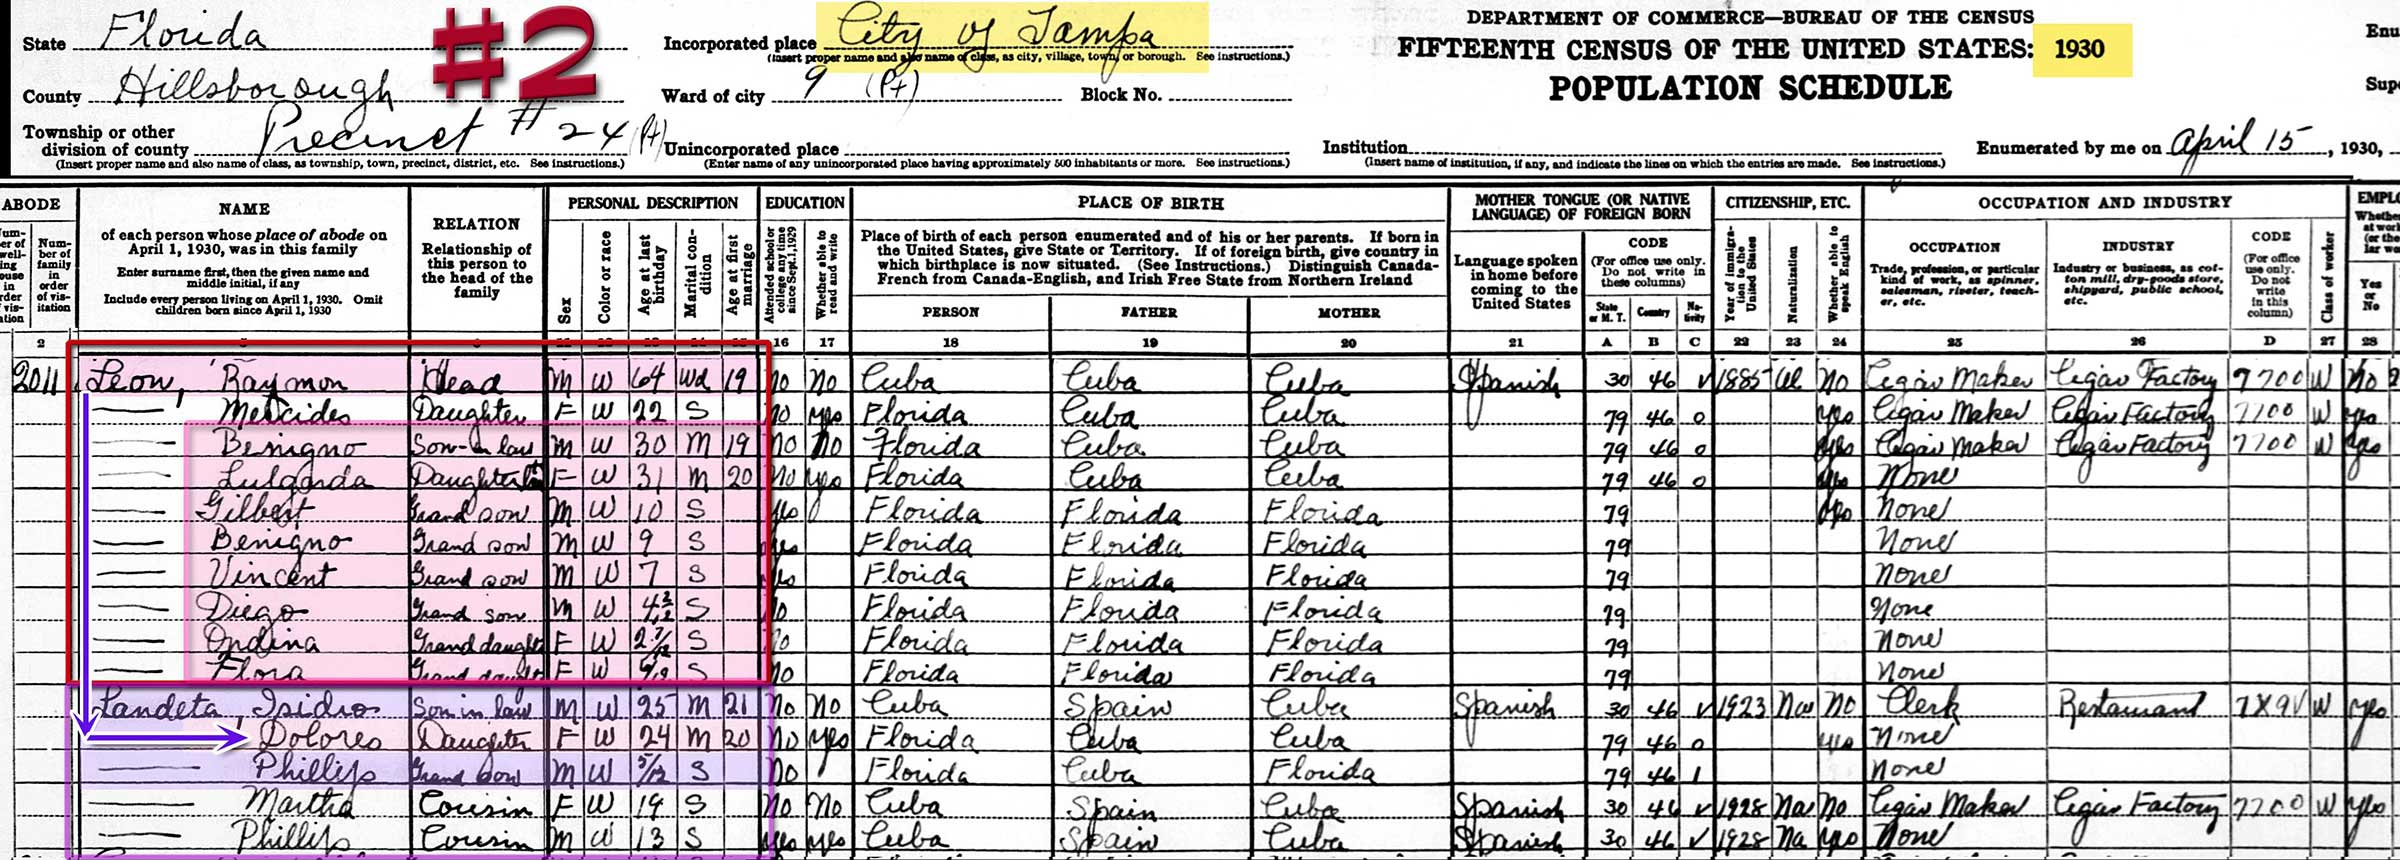 State Florida
#2
County Hillsborough
Township or other division of county Precinct # 24 (Pt)
(Insert proper name and also name of class, as township, town, precinct, district, etc. See instructions.)
Incorporated place City of Tampa
(Insert proper name and also name of class, as city, village, town, or borough. See instructions.)
Ward of city 9 (Pt) Block No.
Unincorporated place
(Enter name of any unincorporated place having approximately 500 inhabitants or more. See instructions.)
DEPARTMENT OF COMMERCE—BUREAU OF THE CENSUS
FIFTEENTH CENSUS OF THE UNITED STATES: 1930
POPULATION SCHEDULE
Institution
(Insert name of institution, if any, and indicate the lines on which the entries are made. See instructions.)
Enumerated by me on April 15, 1930,
ABODE
Num-ber of family in order of vis-itation
NAME
of each person whose place of abode on April 1, 1930, was in this family
Enter surname first, then the given name and middle initial, if any
Include every person living on April 1, 1930. Omit children born since April 1, 1930
RELATION
Relationship of this person to the head of the family
PERSONAL DESCRIPTION
Sex
Color or race
Age at last birthday
Marital con-dition
Age at first marriage
EDUCATION
Attended school or college any time since Sept. 1, 1929
Whether able to read and write
PLACE OF BIRTH
Place of birth of each person enumerated and of his or her parents. If born in
the United States, give State or Territory. If of foreign birth, give country in
which birthplace is now situated. (See Instructions.) Distinguish Canada-
French from Canada-English, and Irish Free State from Northern Ireland
PERSON FATHER MOTHER
MOTHER TONGUE (OR NATIVE LANGUAGE) OF FOREIGN BORN
Language spoken in home before coming to the United States
CODE
(For office use only. Do not write in these columns)
State or M. T. Country Na-tivity
CITIZENSHIP, ETC.
Year of immigra-tion to the United States
Naturalization
Whether able to speak English
OCCUPATION AND INDUSTRY
OCCUPATION
Trade, profession, or particular kind of work, as spinner, salesman, riveter, teach-er, etc.
INDUSTRY
Industry or business, as cot-ton mill, dry-goods store, shipyard, public school, etc.
CODE
(For office use only. Do not write in this column)
Class of worker
Yes or No
2 16 17 18 19 20 21 A B C 22 23 24 25 26 D 27 28
2011 Leon, Raymon Head M W 64 Wd 19 No No Cuba Cuba Cuba Spanish 30 46 V 1885 Al No Cigar Maker Cigar Factory 7700 W No
Daughter F W 22 S No yes Florida Cuba Cuba 79 46 0 yes Cigar Maker Cigar Factory 7700 W yes
Benigno Son-in law M W 30 M 19 No No Florida Cuba Cuba 79 46 0 yes Cigar Maker Cigar Factory 7700 W yes
Lulgarda F W 31 M 20 No yes Florida Cuba Cuba 79 46 0 yes None
Gilbert Grand son M W 10 S yes Florida Florida Florida 79 yes None
Benigno Grand son M W 9 S yes Florida Florida Florida 79 None
Vincent Grand son M W 7 S yes Florida Florida Florida 79 None
Diego Grand son M W S No Florida Florida Florida 79 None
Ondina Grand daughter F W 2 7/12 S No Florida Florida Florida 79 None
Flora F W S No Florida Florida Florida 79 None
Landeta, Isidro Son in law M W 25 M 21 No No Cuba Spain Cuba Spanish 30 46 V 1923 Na No Clerk Restaurant 7X91 W yes
Dolores Daughter F W 24 M 20 No yes Florida Cuba Cuba 79 46 0 yes None
Phillip Grand son M W 5/12 S No Florida Cuba Florida 79 46 1 None
Martha Cousin F W 19 S No No Cuba Spain Cuba Spanish 30 46 V 1928 Na No Cigar Maker Cigar Factory 7700 W yes
Phillip Cousin M W 13 S yes yes Cuba Spain Cuba Spanish 30 46 V 1928 Na yes None